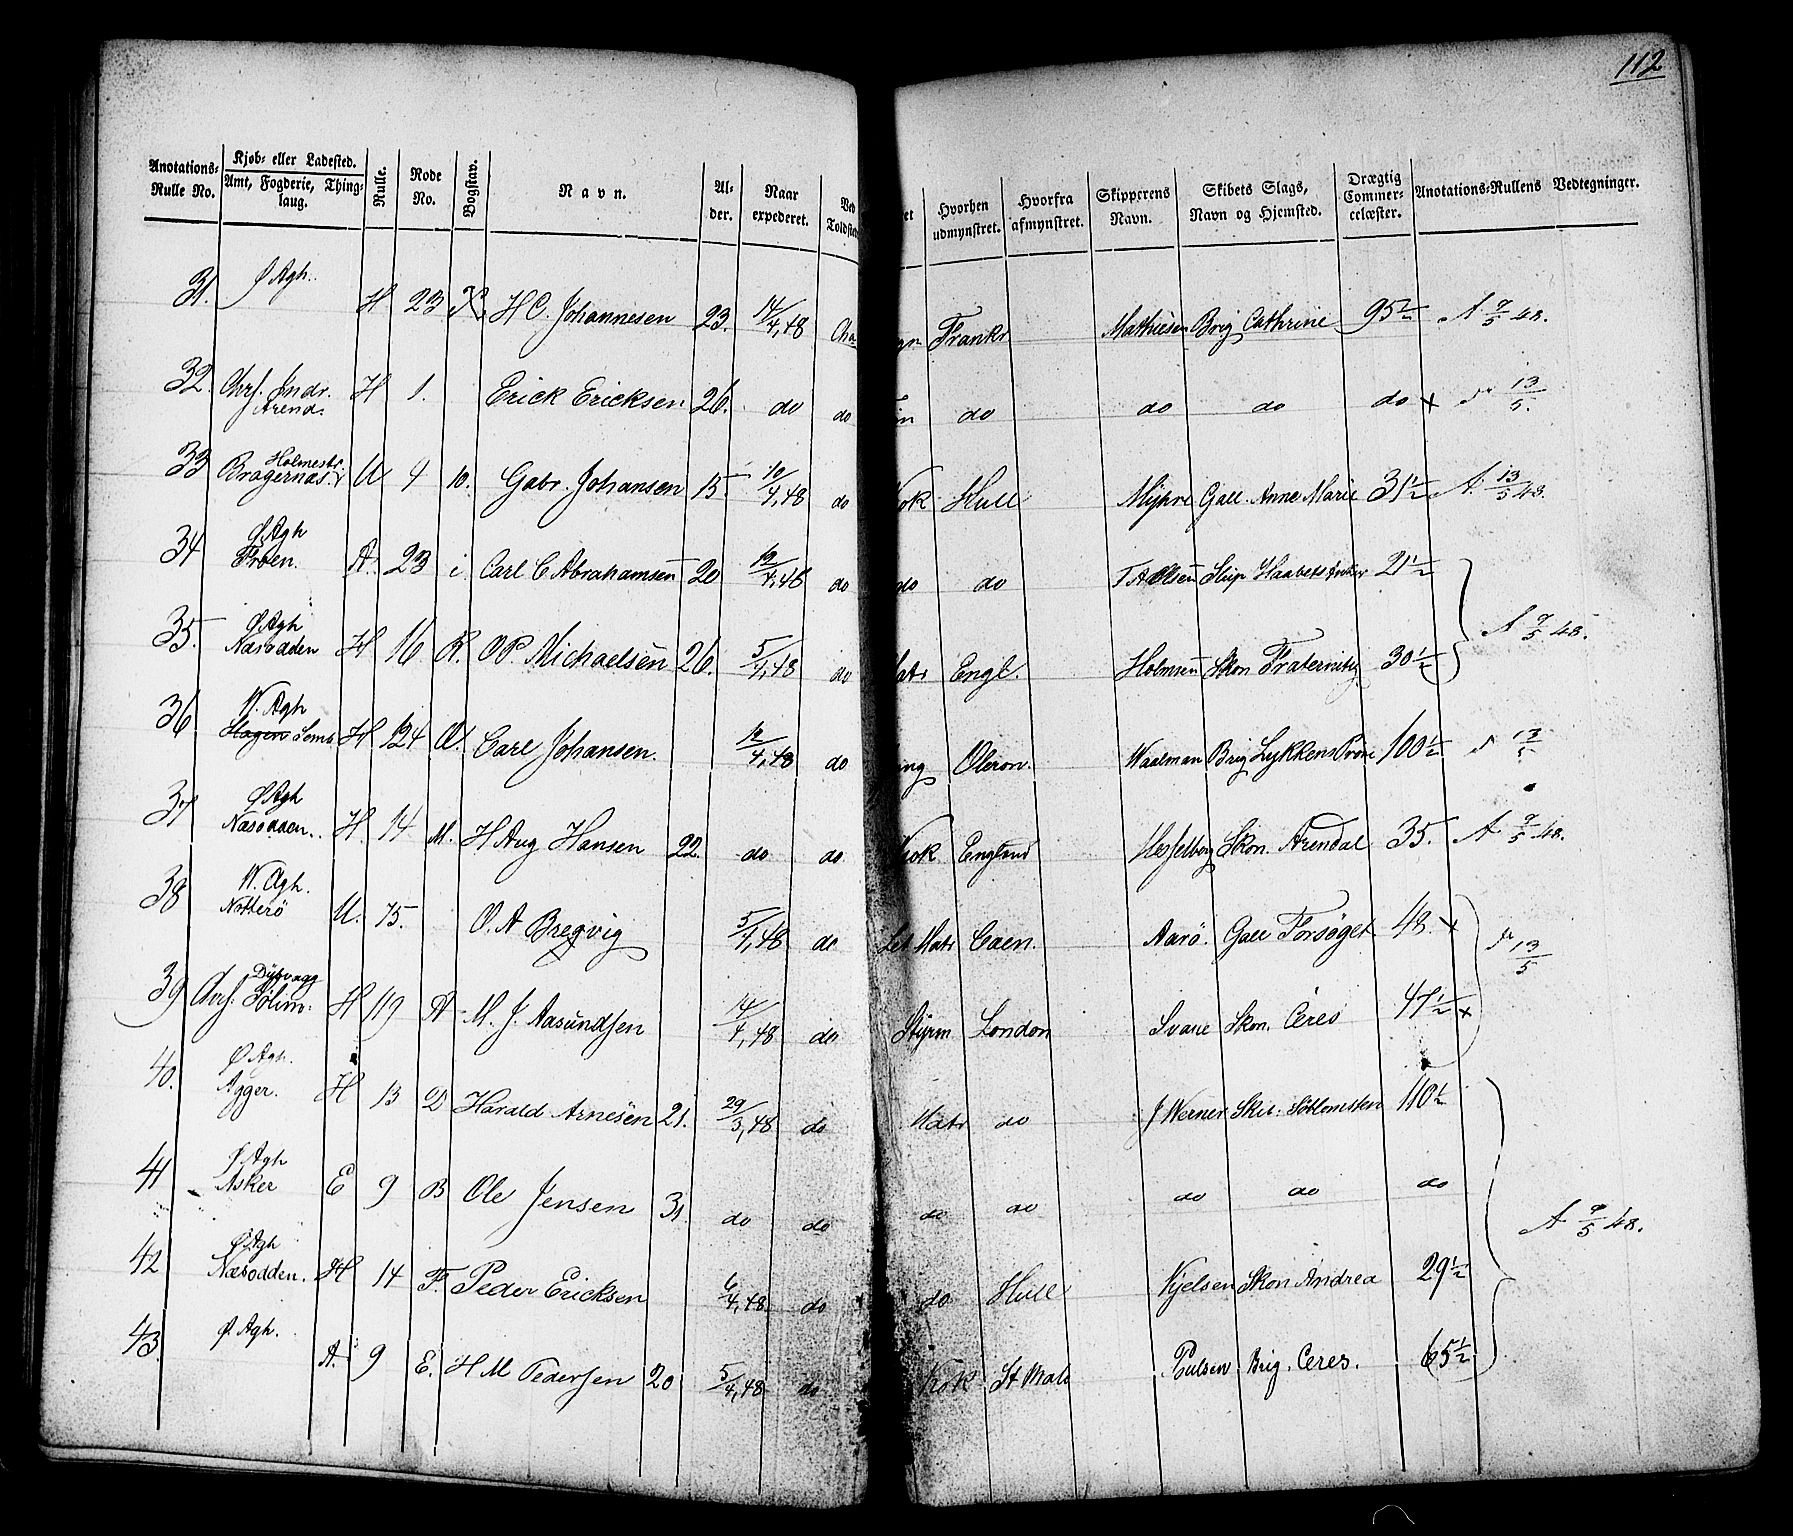 112
Anotations-Rulle No. Kjøb- eller Ladested. Amt, Fogderie, Thinglaug. Rulle. Rode No. Bogstav. Navn. Alder. Naar expederet. Ved Hvorhen udmynstret. Hvorfra afmynstret. Skipperens Navn. Skibets Slags, Navn og Hjemsted. Drægtig Commercelæster. Anotations-Rullens Vedtegninger.
31. Ø Agh. H 23 H C. Johannesen 23. 14/4,48 Cha Frankr Mathiesen Brig Cathrine 95 1/2 A 9/5 48.
32. Chrs. Jndr. Arend. H 1. Erick Ericksen 26. do do do do do do x 13/5.
33 Holmestr. Bragernæs. U 9 10. Gabr. Johansen 15. 10/4,48 do Kok Hull Myhre Gall. Anne Marie 31 1/2 A. 13/5 48.
34 Ø Agh Froen. A. 23 i. Carl C Abrahamsen 20 12/4,48 do do do T A Olsen Slup Haabets Anker 21 1/2
35. Ø Agh Næsodden H 16 K. O P. Michaelsen 26. 5/4,48 do Matr Engl. Holmsen Skon Fraternity 30 1/2 A 9/5 48.
36 V. Agh Semb H 124 O. Carl Johansen. 12/4,48 do Oleron. Waalman Brig Lykkens Prøve 100 1/2 13/5
37 Ø Agh Næsodden. H. 14 M. H Aug Hansen 22. do do Kok. England Hesselberg Skon. Arendal 35. A 9/5 48.
38 V. Agh. Nøtterö U. 75. O. A Bregvig 5/4,48 do Let Matr Caen. Aarö. Gall Forsöget 48. x 13/5
39 Chrs. Dybvaag H 119 A M. J. Aasundsen 14/4,48 do Styrm London Svane Skon. Ceres 47 1/2 x
40. Ø Agh. Agger. H 13 D Harald Arnesen 21. 29/3,48 do Matr do J Werner Skib. Søblomsten 110 1/2
41 Ø Agh Asker E 9 B Ole Jensen 31. do do do do do do do A 9/5 48.
42 Ø Agh Næsodden. H 14 F. Peder Ericksen 6/4,48 do do Hull Njelsen Skon Andrea 29 1/2
43. Ø. Agh. A. 9 E. H M Pedersen 20 5/4,48 do Kok St Malo Poulsen Brig. Ceres. 65 1/2